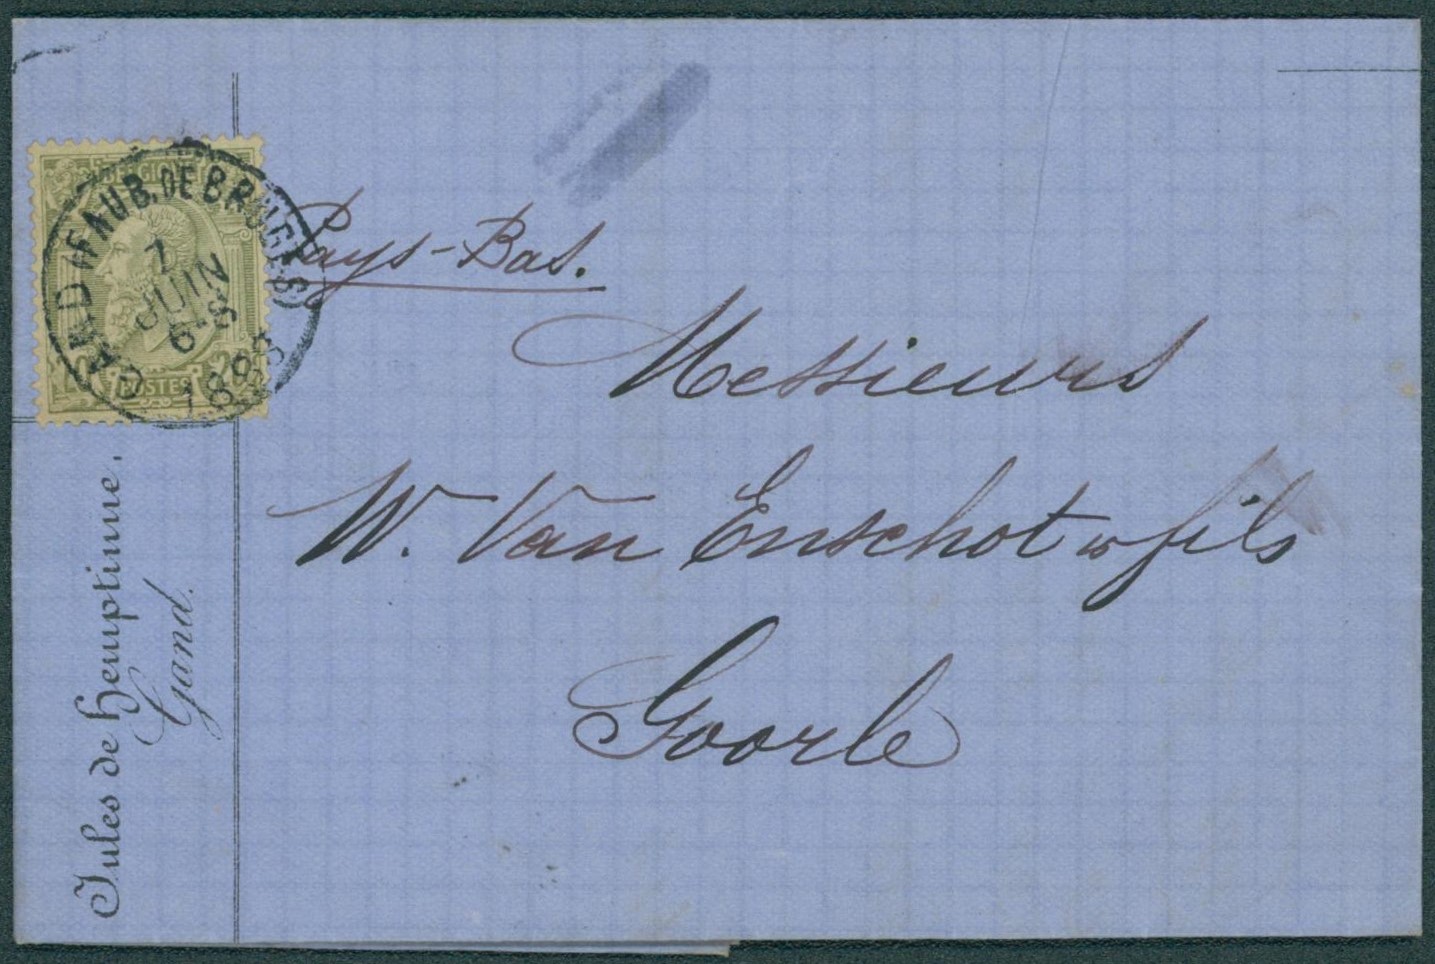 GAND (FAUB. DE BRUGES)
7
JUIN
6-S
1888
BELGIQUE
POSTES
Pays-Bas.
Messieurs
W. Van Enschot & fils
Goorle
Jules de Hemptinne.
Gand.